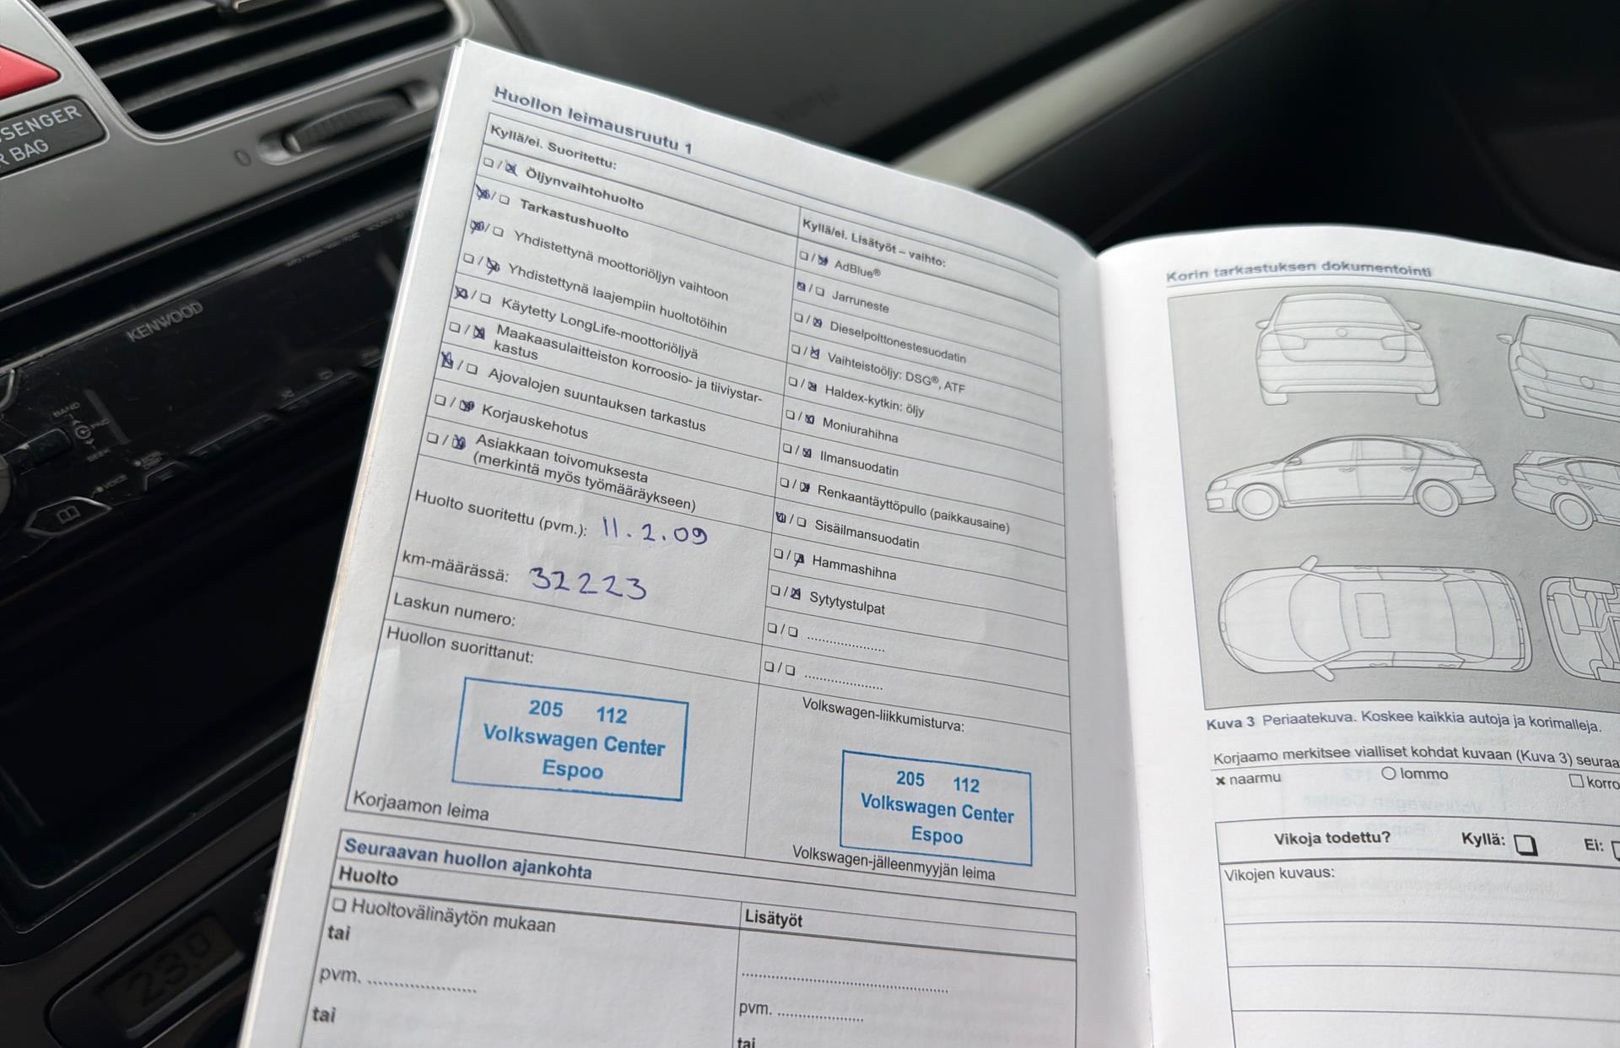 SENGER
R BAG
KENWOOD
BAND
VOICE
23.0
Huollon leimausruutu 1
Kyllä/ei. Suoritettu:
Öljynvaihtohuolto
Tarkastushuolto
Yhdistettynä moottoriöljyn vaihtoon
Yhdistettynä laajempiin huoltotöihin
Käytetty LongLife-moottoriöljyä
Maakaasulaitteiston korroosio- ja tiiviystar-
kastus
Ajovalojen suuntauksen tarkastus
Korjauskehotus
Asiakkaan toivomuksesta
(merkintä myös työmääräykseen)
Huolto suoritettu (pvm.): 11.2.09
km-määrässä: 32223
Laskun numero:
Huollon suorittanut:
205 112
Volkswagen Center
Espoo
Korjaamon leima
Kyllä/ei. Lisätyöt – vaihto:
AdBlue®
Jarruneste
Dieselpolttonestesuodatin
Vaihteistoöljy: DSG®, ATF
Haldex-kytkin: öljy
Moniurahihna
Ilmansuodatin
Renkaantäyttöpullo (paikkausaine)
Sisäilmansuodatin
Hammashihna
Sytytystulpat
Volkswagen-liikkumisturva:
205 112
Volkswagen Center
Espoo
Volkswagen-jälleenmyyjän leima
Seuraavan huollon ajankohta
Huolto
Huoltovälinäytön mukaan
tai
pvm. ....................
tai
Lisätyöt
pvm. ................
tai
Korin tarkastuksen dokumentointi
Kuva 3 Periaatekuva. Koskee kaikkia autoja ja korimalleja.
Korjaamo merkitsee vialliset kohdat kuvaan (Kuva 3) seuraa
× naarmu lommo korro
Vikoja todettu? Kyllä: Ei:
Vikojen kuvaus: